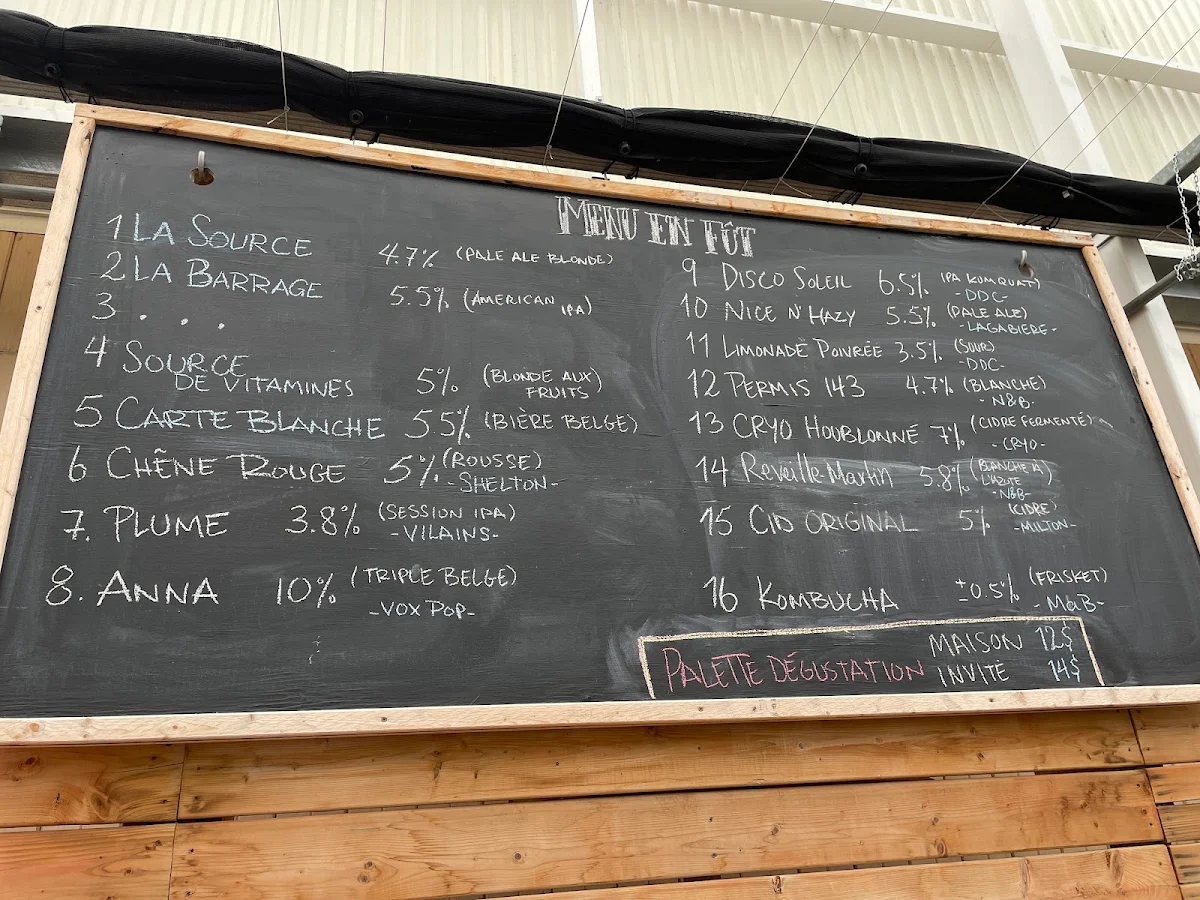 MENU EN FÛT
1 LA SOURCE 4.7% (PALE ALE BLONDE)
2 LA BARRAGE 5.5% (AMERICAN
IPA)
3 . . . .
4 SOURCE
DE VITAMINES 5% (BLONDE AUX)
FRUITS
5 CARTE BLANCHE 5.5% (BIÈRE BELGE)
6 CHÊNE ROUGE 5% (ROUSSE)
-SHELTON-
7. PLUME 3.8% (SESSION IPA)
-VILAINS-
8. ANNA 10% (TRIPLE BELGE)
-VOX POP-
9 DISCO SOLEIL 6.5% (IPA KOMQUAT)
-DDC-
10 NICE N'HAZY 5.5% (PALE ALE)
-LAGABIERE-
11 LIMONADE POIVRÉE 3.5% (SOUR)
-DDC-
12 PERMIS 143 4.7% (BLANCHE)
-N&B-
13 CRYO HOUBLONNÉ 7% (CIDRE FERMENTÉ)
-CRYO-
14 Reveille-Martin 5.8% (BLANCHE À
L'AZUTE
-N&B-
15 CID ORIGINAL 5% (CIDRE)
-MILTON-
16 KOMBUCHA ±0.5% (FRISKET)
-MaB-
PALETTE DÉGUSTATION MAISON 12$
INVITÉ 14$